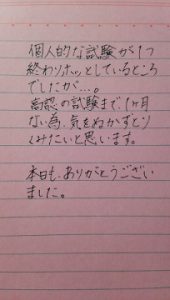 個人的な試験が1つ
終わりホッとしているところ
でしたが…。
認の試験まで、1ヶ月
ない為、気をぬかずとり
くみたいと思います。
本日も、ありがとうござい
ました。